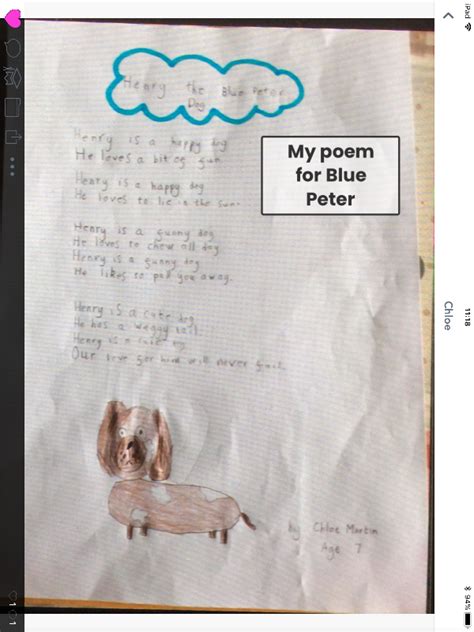 iPad
11:18
94%
Chloe
Henry the Blue Peter
Dog
Henry is a happy dog
He loves a bit of fun.
Henry is a happy dog
He loves to lie in the sun.
My poem
for Blue
Peter
Henry is a funny dog
He loves to chew all day
Henry is a funny dog
He likes to pull you away.
Henry is a cute dog
He has a waggy tail.
Henry is a cute dog
Our love for him will never fail.
by Chloe Martin
Age 7
1
1